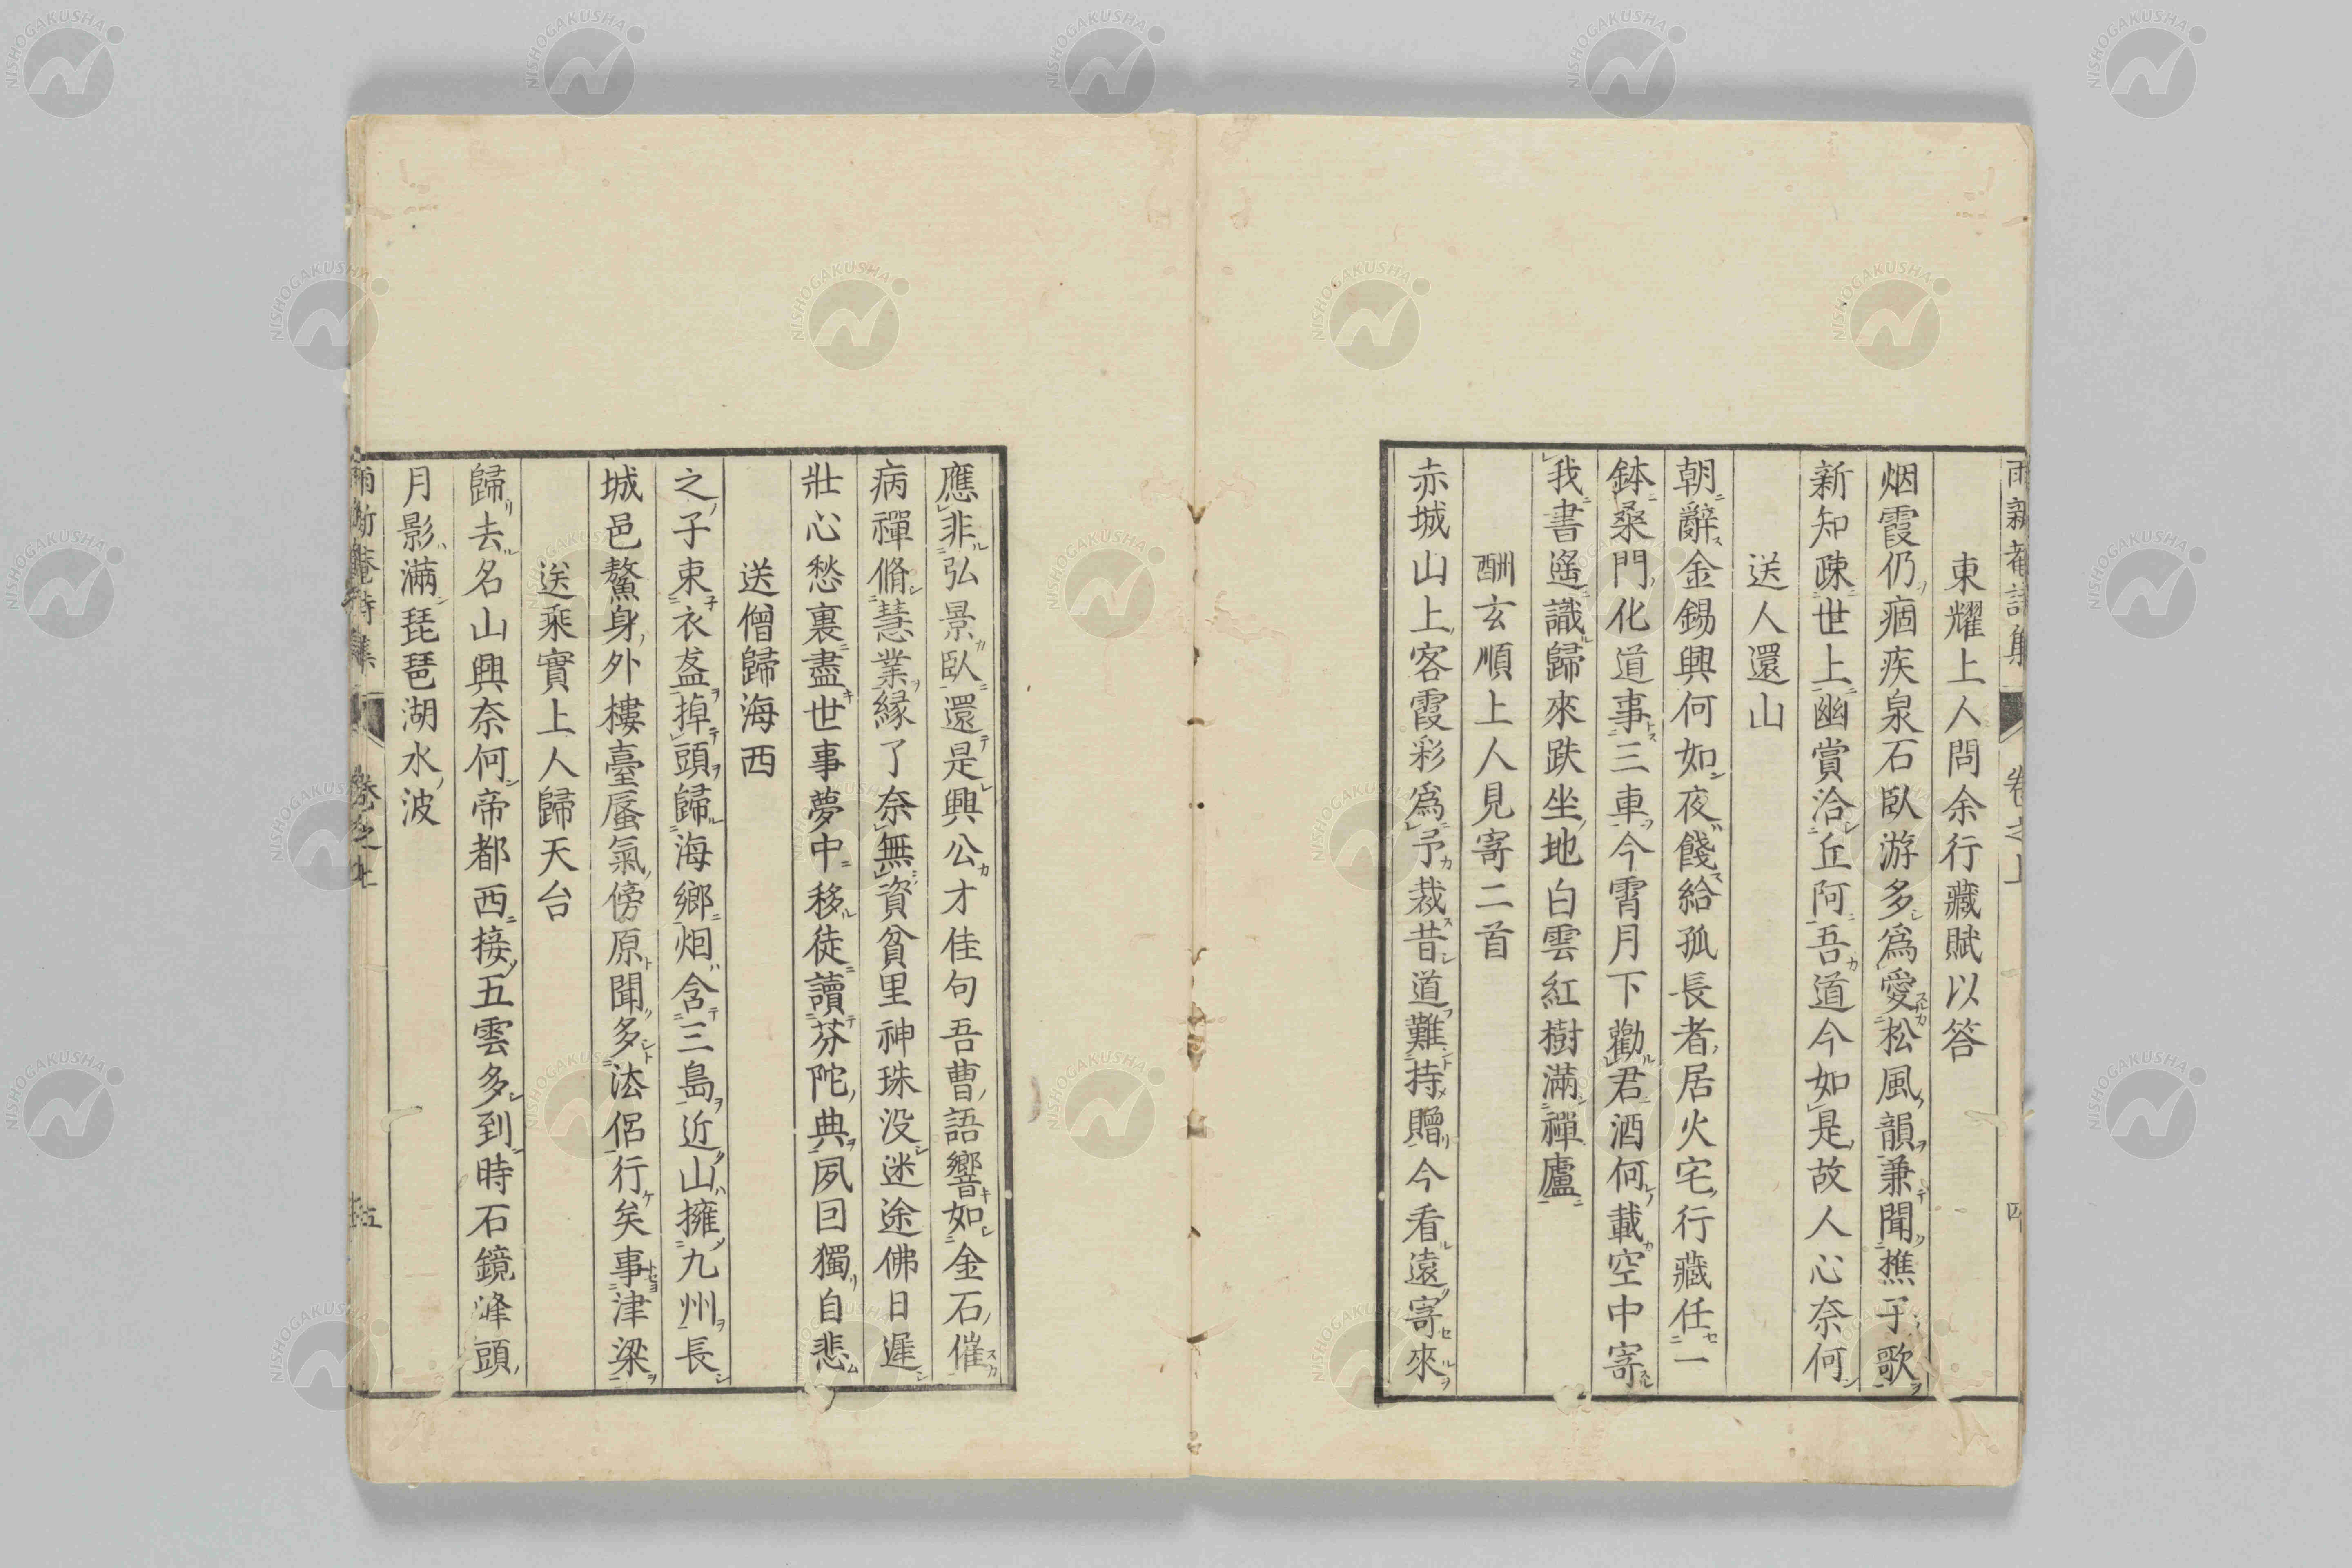 東耀上人問余行藏賦以答
烟霞仍痼疾泉石臥游多爲愛松風韻兼聞樵子歌
新知疎世上幽賞洽丘阿吾道今如是故人心奈何
送人還山
朝辭金錫興何如夜餞給孤長者居火宅行藏任一
鉢桑門化道事三車今霄月下勸君酒何載空中寄
我書遙識歸來趺坐地白雲紅樹滿禪廬
酬玄順上人見寄二首
赤城山上客霞彩爲予裁昔道難持贈今看遠寄來
應非弘景臥還是興公才佳句吾曹語響如金石催
病禪脩慧業縁了奈無資貧里神珠没迷途佛日遲
壯心愁裏盡世事夢中移徒讀芬陀典夙囙獨自悲
送僧歸海西
之子東衣盋掉頭歸海鄉烟含三島近山擁九州長
城邑鰲身外樓臺蜃氣傍原聞多法侶行矣事津梁
送乘實上人歸天台
歸去名山興奈何帝都西接五雲多到時石鏡峰頭
月影滿琵琶湖水波
卷之上
五
NISHOGAKUSHA